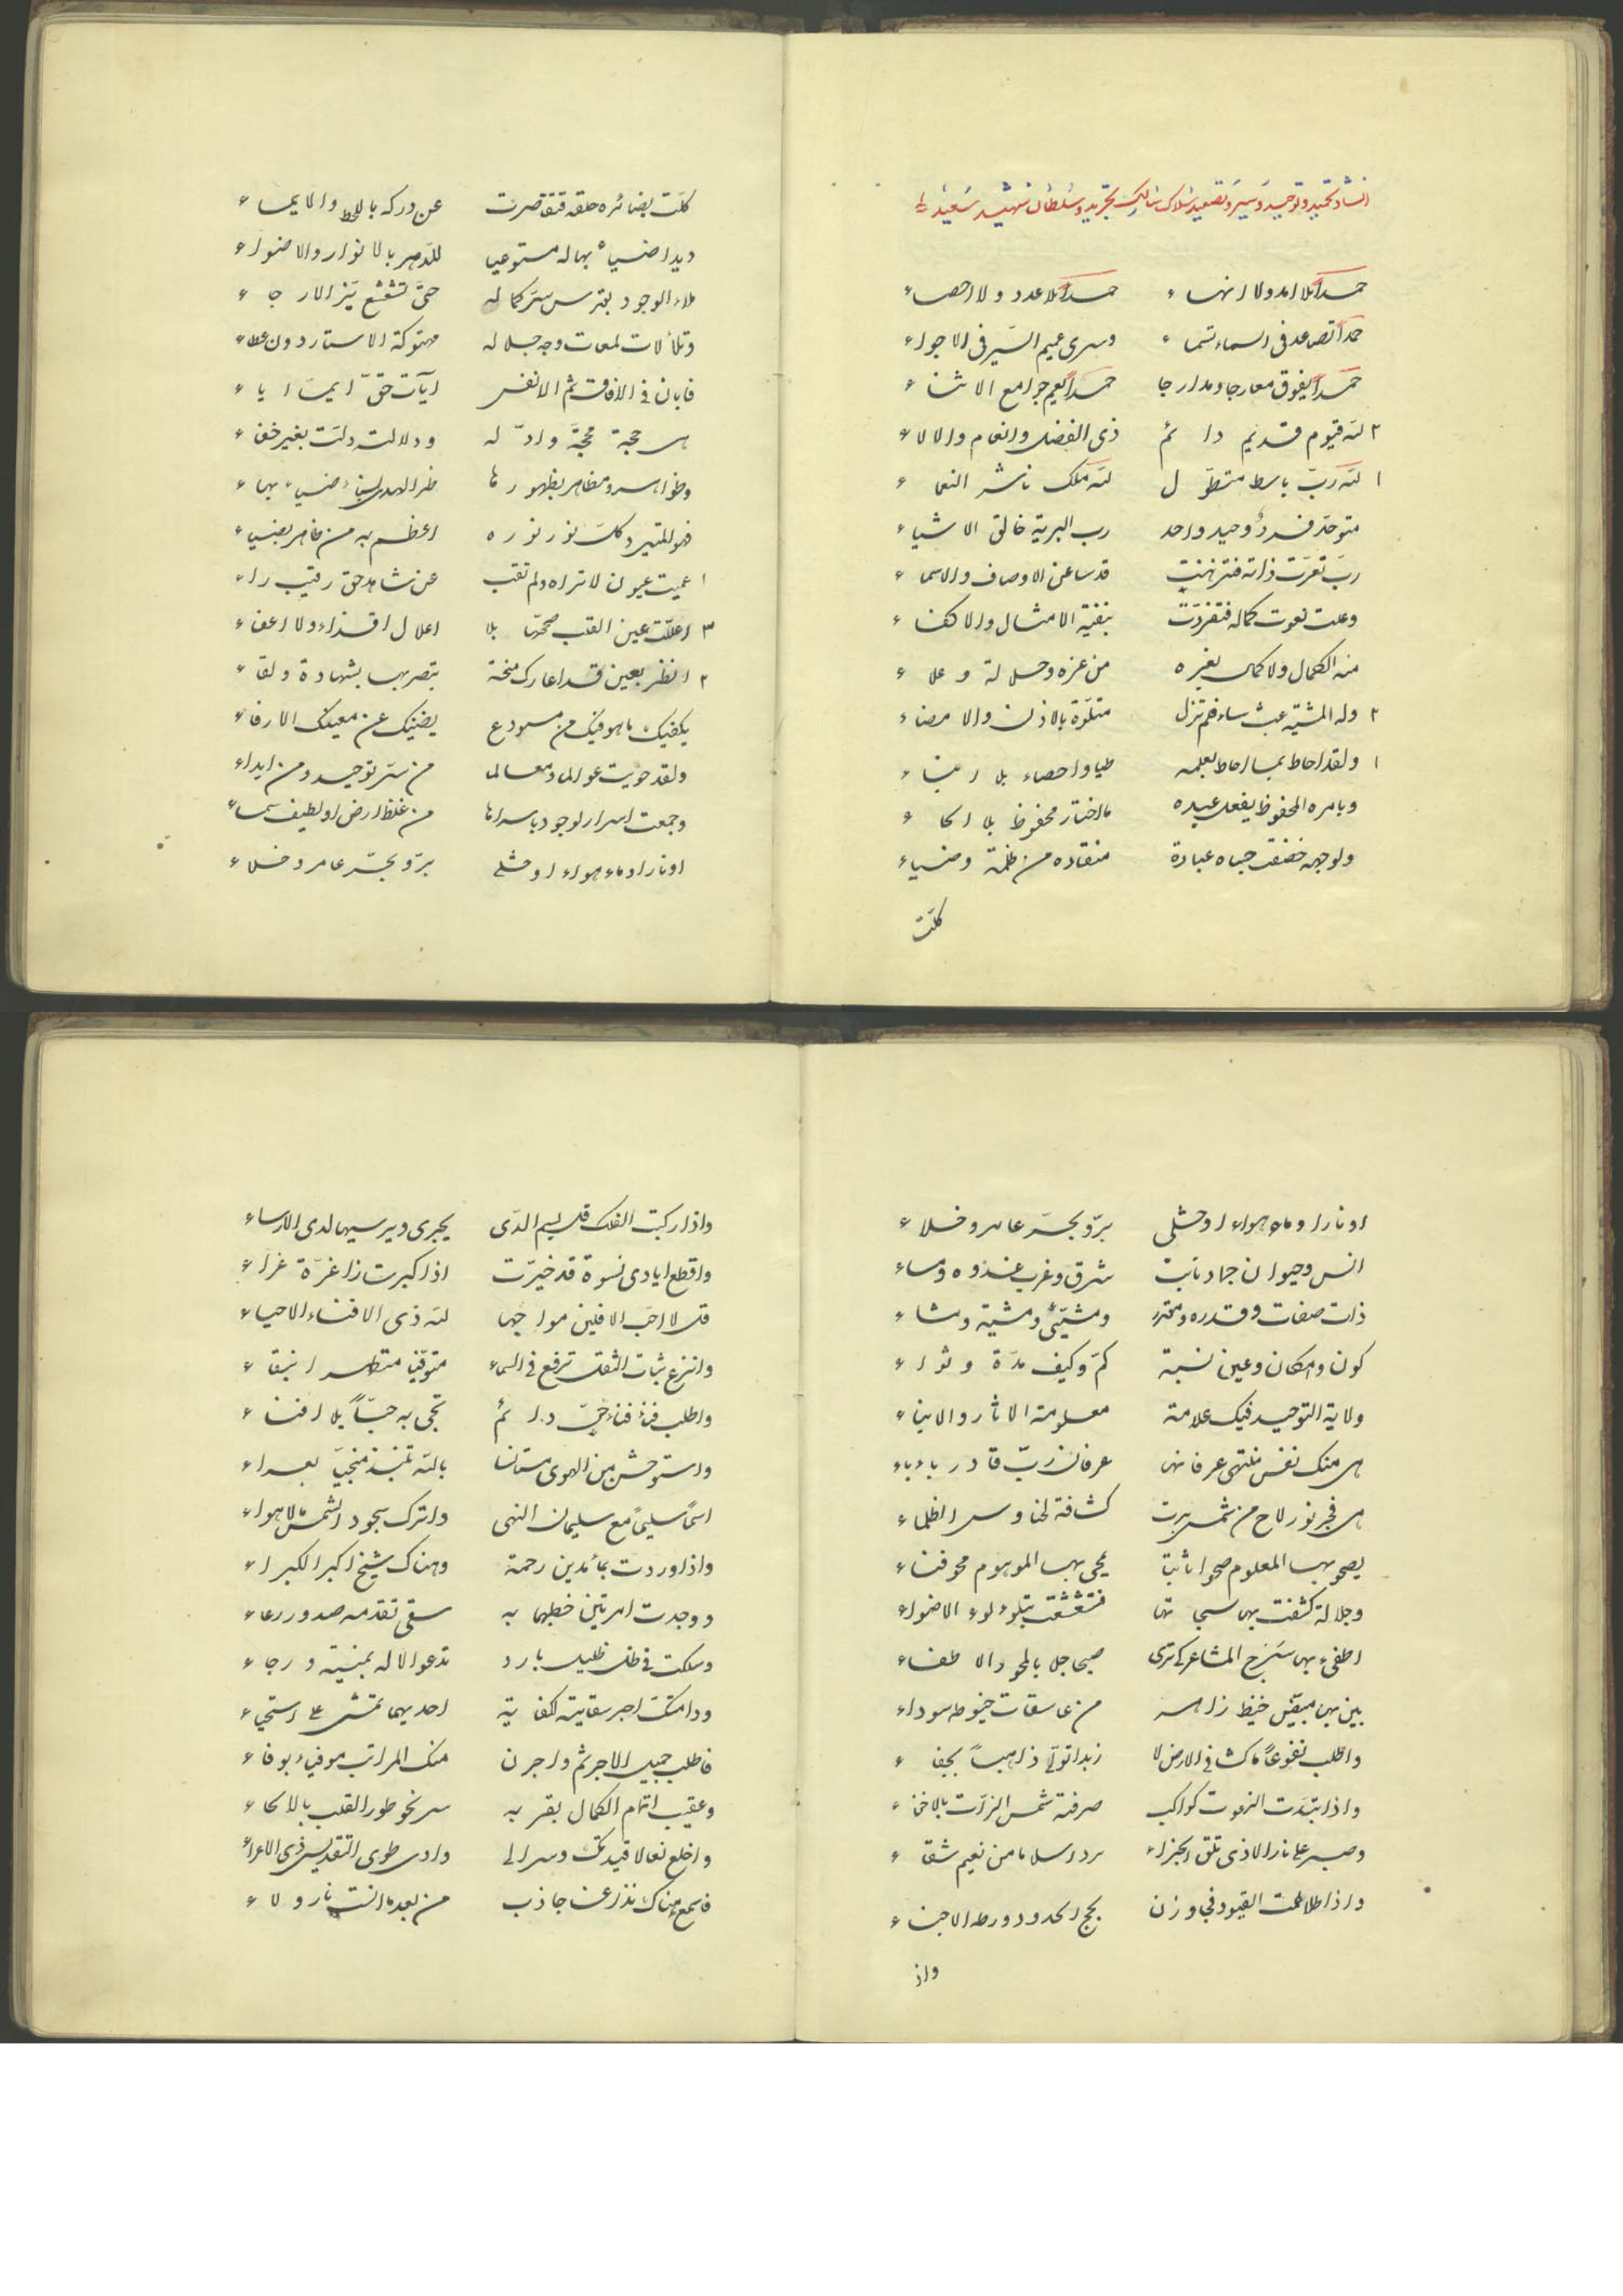 حمداً بلا امد ولا انهاء حمداً بلا عدد ولا احصاء
حمداً تصاعد فى السماء تسماء وسرى عميم السير فى الاجواء
حمداً يفوق معارجا ومدارجا حمداً يعم جوامع الاثناء
٢ لله قيوم قديم دائم ذى الفضل والانعام والالاء
١ لله رب باسط متطول لله ملك ناشر النعماء
متوحد فرد وحيد واحد رب البرية خالق الاشياء
رب تعرت ذاته فتنزهت قدسا عن الاوصاف والاسماء
وعلت نعوت كماله فتفردت بنفية الامثال والاكفاء
منه الكمال ولا كمال بغيره من عزه وجلالة وعلاء
٢ وله المشية حيث ساء فلم تزل متلوة بالاذن والامضاء
١ ولقد احاط بما احاط بعلمه طيا واحصاء بلا
وبامره المحفوظ يفعل عبده مااختار محفوظ بلا
ولوجهه خضعت جباه عبادة منقاده من ظلمة وضياء
كلت
كلت بصائره حلقه فتقاصرت عن دركه باللحظ والايماء
بهاله مستوعبا للدهر بالانوار والاضواء
ملاء الوجود بقرس سر كماله حتى تشعشع نير الارجاء
وتلألأت لمعات وجه جلاله مهتوكة الاستار دون غطاء
فابان فى الافاق ثم الانفس ايات حق
هى حجة محجة وادله ودلالت دلت بغير خفاء
وظواهر ومظاهر بظهورها
نور نوره اعظم به من ظاهر بضياء
١ عميت عيون لا تراه ولم تقب عن شاهد حق رقيب راء
٣ اعللت عين القلب صحتها بلا اعلال اقذاء ولا اعفاء
٢ انظر بعين قد اعارك منحة تبصر بها بشهادة ولقاء
يكفيك ما هو فيك من مستودع يغنيك عن معينك الارفاء
ولقد حويت عوالما ومعالما من سر توحيد ومن ابداء
وجمعت اسرار لوجود باسرها من غلظ ارض او لطيف سماء
او نار او ماء هواء او خلى بر وبحر عامر وخلاء
او نار او ماء هواء او خلى بر وبحر عامر وخلاء
انس وحيوان جماد نابت شرق وغرب غدوه ومساء
ذات صفات وقدره ومقدر ومشيئى ومشية ومشاء
كون وامكان وعين نسبة كم وكيف مدة وثواء
ولاية التوحيد فيك علامة معلومة الاثار والانباء
هى منك نفس منتهى عرفانها عرفان رب قادر
هى فجر نور لاح من شمس بدت كشافة لحناوس الظلماء
يصحو بها المعلوم صحوا ثابتا يمحى بها الموهوم محو فناء
وجلالة كشفت بها فتشعشعت بتلوء لوء الاضواء
اطفىء بها سرج المشاعر كى ترى صبحا جلا بالمحو والاطفاء
بين بها مبيض خيط زاهر من غاسقات خيوطه سوداء
واطلب نفوعاً ماكثا فى الارض لا زبدا تولى ذاهباً بجفاء
واذا تبدت النعوت كواكب صرفته شمس الذات بالاخفاء
وصبر على نار الاذى تلق الجزاء بردا سلاما من نعيم شقاء
واذا طلاطمت القيود فجاوزن لجج الحدود ورطه الاحياء
واذ
واذا ركبت الفلك قل بسم الذى يجرى ويرسيها لدى الارساء
واقطع ايادى نسوة قد خيرت اذا كبرت زا غرة غراء
قل لا احب الافلين مواجها لله ذى الافناء الاحياء
وانزع ثياب الثقل ترفع فى السماء متوقيا متطهرا بنقاء
واطلب فناء حى دائم تحى به حياً بلا افناء
واستوحش من الهوى مستانسا بالله تنبذ منجيا بعراء
اسماً سليماً مع سليمان النهى واترك سجود الشمس للاهواء
واذا وردت بماء مدين رحمة وهناك شيخ اكبر الكبراء
ووجدت امرتين خطبهما به سقى تقدمه صدور رعاء
وسلكت فى ظل ظليل بارد تدعو الاله بمنية ورجاء
ودامتك اجر سقاية لكفاية احديهما تمشى على استحياء
فاطلب جميل الاجر ثم واجرن منك المراتب موفيا بوفاء
وعقيب اتمام الكمال بقربه سر نحو طور القلب
واخلع نعالا قيدتك وسر الى وادى طوى التقديس ذى الاعراء
فاسمع هناك نداء جاذب من بعد ما انست نار ولاء